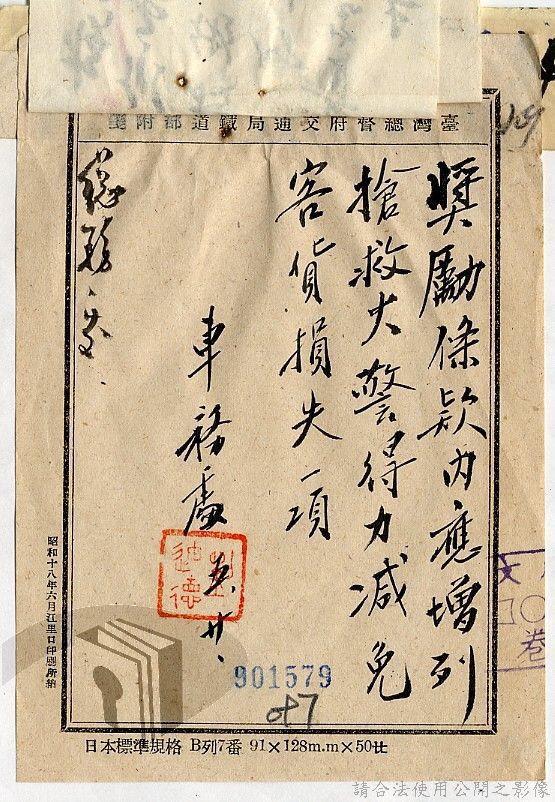 臺灣總督府交通局鐵道部附箋
獎勵條款內應增列
搶救火警得力減免
客貨損失一項
車務處
五.廿.
總務處
昭和十八年六月江里口印刷所納
901579
日本標準規格 B列7番 91×128m.m×50卋
請合法使用公開之影像